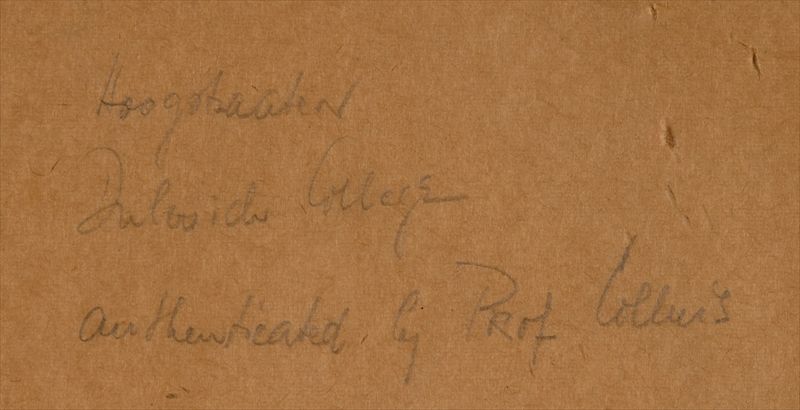 Hoogstraaten
Dulwich College
authenticated by Prof Collins